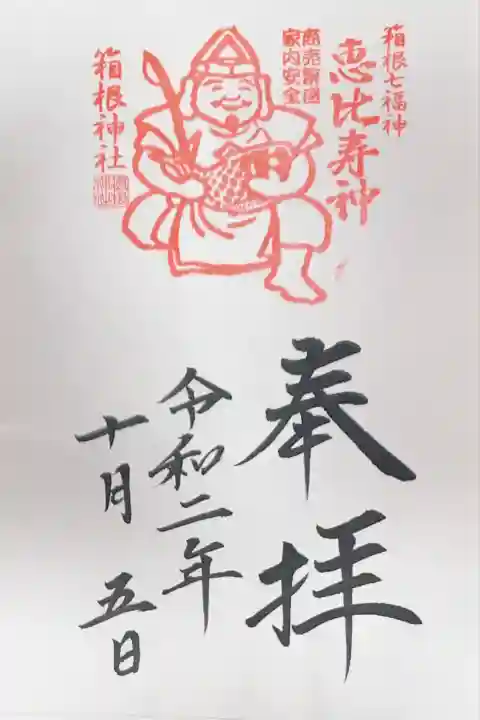 箱根七福神
恵比寿神
商売繁盛
家内安全
箱根神社
奉拝
令和二年
十月五日